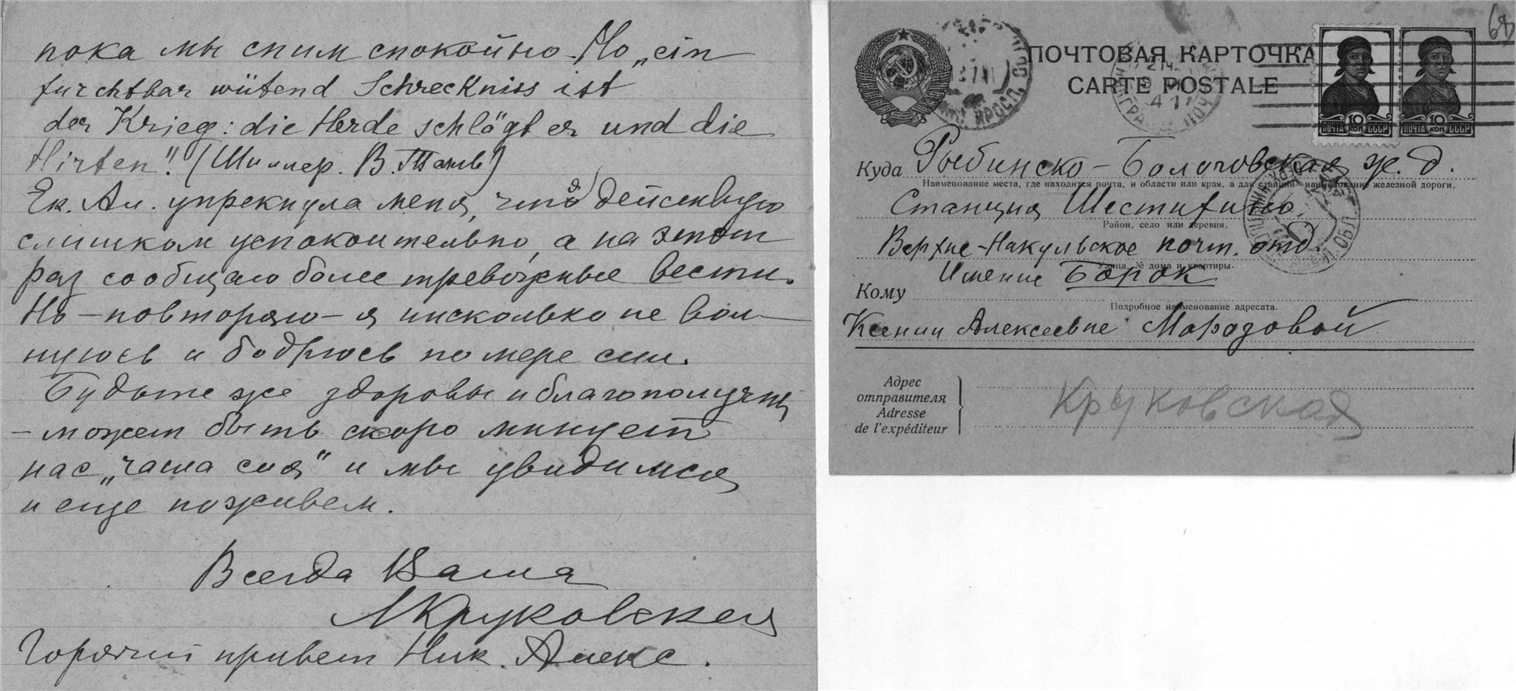 пока мы спим спокойно. Но „ein
furchtbar wütend Schreckniss ist
der Krieg: die Herde schlägt er und die
Hirten". (Шиллер. В. Телль)
Ек. Ал. упрекнула меня, что я действую
слишком успокоительно, а на этот
раз сообщаю более тревожные вести.
Но – повторяю – я нисколько не вол-
нуюсь и бодрюсь по мере сил.
Будьте же здоровы и благополучны
– может быть скоро минует
нас „чаша сия" и мы увидимся
и еще поживем.
Всегда Ваша
МКруковская
Горячий привет Ник. Алекс.
68
ПОЧТОВАЯ КАРТОЧКА
CARTE POSTALE
ПОЧТА 10 КОП СССР
ПОЧТА 10 КОП СССР
Куда Рыбинско – Бологовская ж. д.
Наименование места, где находится почта, и области или края, а для станций – наименование железной дороги.
Станция Шестихино
Район, село или деревня.
Верхне-Никульское почт. отд.
Улица, № дома и квартиры.
Имение Борок
Кому
Подробное наименование адресата.
Ксении Алексеевне Морозовой
Адрес
отправителя
Adresse
de l'expéditeur
Круковская